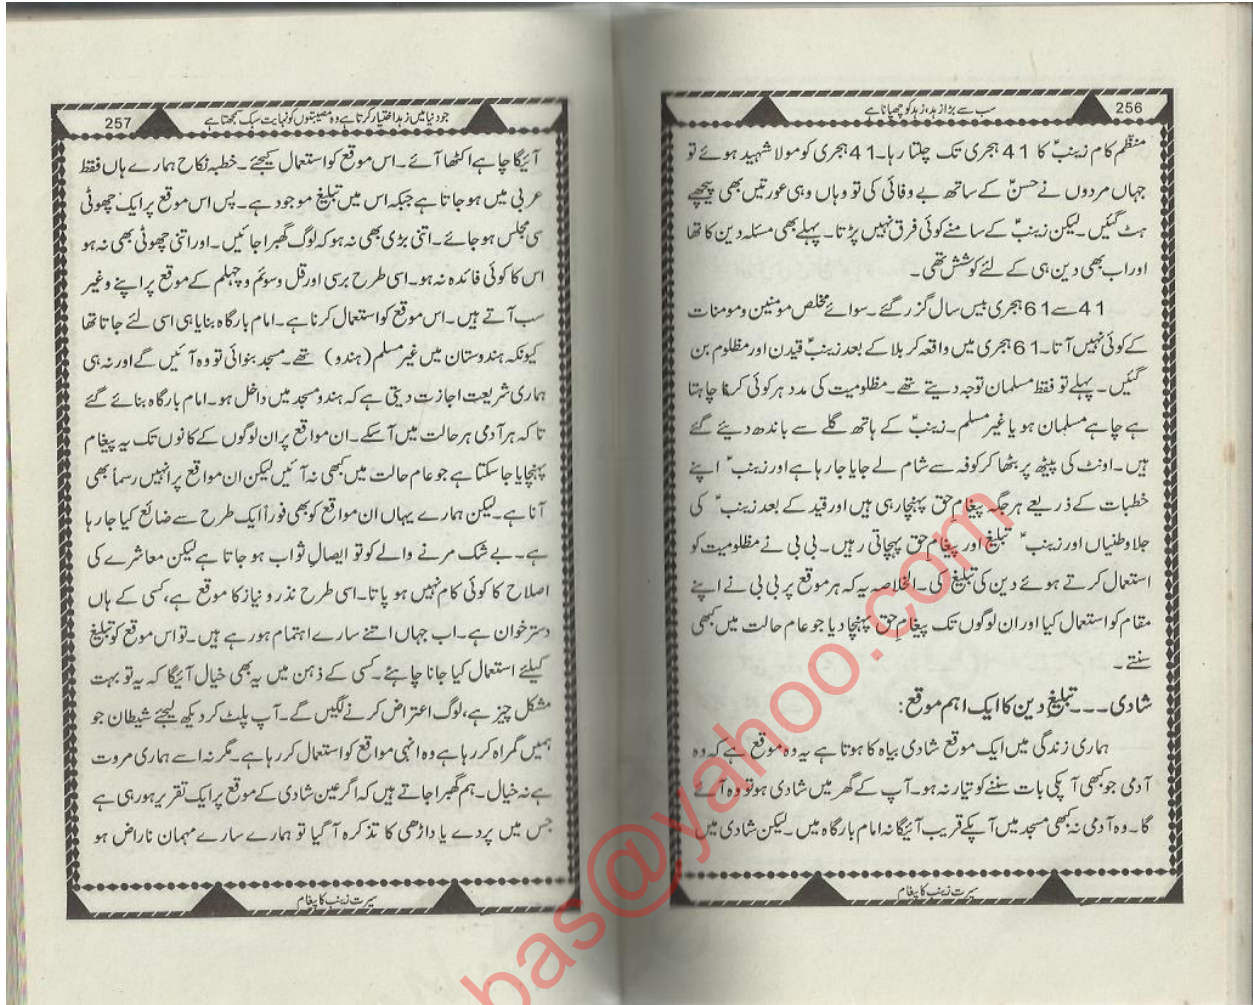 256
سب سے بڑا زہد، زہد کو چھپانا ہے
منظم کام زینبؑ کا 41 ہجری تک چلتا رہا۔ 41 ہجری کو مولا شہید ہوئے تو
جہاں مردوں نے حسنؑ کے ساتھ بے وفائی کی تو وہاں وہی عورتیں بھی پیچھے
ہٹ گئیں۔ لیکن زینبؑ کے سامنے کوئی فرق نہیں پڑتا۔ پہلے بھی مسئلہ دین کا تھا
اور اب بھی دین ہی کے لئے کوشش تھی۔
41 سے 61 ہجری بیس سال گزر گئے۔ سوائے مخلص مومنین و مومنات
کے کوئی نہیں آتا۔ 61 ہجری میں واقعہ کربلا کے بعد زینبؑ قیدن اور مظلوم بن
گئیں۔ پہلے تو فقط مسلمان توجہ دیتے تھے۔ مظلومیت کی مدد ہر کوئی کرنا چاہتا
ہے چاہے مسلمان ہو یا غیر مسلم۔ زینبؑ کے ہاتھ گلے سے باندھ دیئے گئے
ہیں۔ اونٹ کی پیٹھ پر بٹھا کر کوفہ سے شام لے جایا جا رہا ہے اور زینبؑ اپنے
خطبات کے ذریعے ہر جگہ پیغام حق پہنچا رہی ہیں اور قید کے بعد زینبؑ کی
جلا وطنیاں اور زینبؑ تبلیغ اور پیغام حق پہچاتی رہیں۔ بی بی نے مظلومیت کو
استعمال کرتے ہوئے دین کی تبلیغ کی۔ الخلاصہ یہ کہ ہر موقع پر بی بی نے اپنے
مقام کو استعمال کیا اور ان لوگوں تک پیغام حق پہنچا دیا جو عام حالت میں کبھی نہیں
سنتے۔
شادی۔۔۔ تبلیغ دین کا ایک اہم موقع:
ہماری زندگی میں ایک موقع شادی بیاہ کا ہوتا ہے یہ وہ موقع ہے کہ وہ
آدمی جو کبھی آپکی بات سننے کو تیار نہ ہو۔ آپ کے گھر میں شادی ہو تو وہ آئے
گا۔ وہ آدمی نہ کبھی مسجد میں آپکے قریب آئیگا نہ امام بارگاہ میں۔ لیکن شادی میں
سیرت زینبؑ کا پیغام
257
جو دنیا میں زہد اختیار کرتا ہے وہ مصیبتوں کو نہایت سبک سمجھتا ہے
آئیگا چاہے اکٹھا آئے۔ اس موقع کو استعمال کیجئے۔ خطبہ نکاح ہمارے ہاں فقط
عربی میں ہو جاتا ہے جبکہ اس میں تبلیغ موجود ہے۔ پس اس موقع پر ایک چھوٹی
سی مجلس ہو جائے۔ اتنی بڑی بھی نہ ہو کہ لوگ گھبرا جائیں۔ اور اتنی چھوٹی بھی نہ ہو
اس کا کوئی فائدہ نہ ہو۔ اسی طرح برسی اور قل و سوئم و چہلم کے موقع پر اپنے وغیر
سب آتے ہیں۔ اس موقع کو استعمال کرنا ہے۔ امام بارگاہ بنایا ہی اسی لئے جاتا تھا
کیونکہ ہندوستان میں غیر مسلم (ہندو) تھے۔ مسجد بنوائی تو وہ آئیں گے اور نہ ہی
ہماری شریعت اجازت دیتی ہے کہ ہندو مسجد میں داخل ہو۔ امام بارگاہ بنائے گئے
تاکہ ہر آدمی ہر حالت میں آسکے۔ ان مواقع پر ان لوگوں کے کانوں تک یہ پیغام
پہنچایا جا سکتا ہے جو عام حالت میں کبھی نہ آئیں لیکن ان مواقع پر انہیں رسماً بھی
آنا ہے۔ لیکن ہمارے یہاں ان مواقع کو بھی فوراً ایک طرح سے ضائع کیا جا رہا
ہے۔ بے شک مرنے والے کو تو ایصالِ ثواب ہو جاتا ہے لیکن معاشرے کی
اصلاح کا کوئی کام نہیں ہو پاتا۔ اسی طرح نذر و نیاز کا موقع ہے، کسی کے ہاں
دسترخوان ہے۔ اب جہاں اتنے سارے اہتمام ہو رہے ہیں۔ تو اس موقع کو تبلیغ
کیلئے استعمال کیا جانا چاہئے۔ کسی کے ذہن میں یہ بھی خیال آئیگا کہ یہ تو بہت
مشکل چیز ہے، لوگ اعتراض کرنے لگیں گے۔ آپ پلٹ کر دیکھ لیجئے شیطان جو
ہمیں گمراہ کر رہا ہے وہ انہی مواقع کو استعمال کر رہا ہے۔ مگر نہ اسے ہماری مروت
ہے نہ خیال۔ ہم گھبرا جاتے ہیں کہ اگر عین شادی کے موقع پر ایک تقریر ہو رہی ہے
جس میں پردے یا داڑھی کا تذکرہ آ گیا تو ہمارے سارے مہمان ناراض ہو
سیرت زینبؑ کا پیغام
bas@yahoo.com